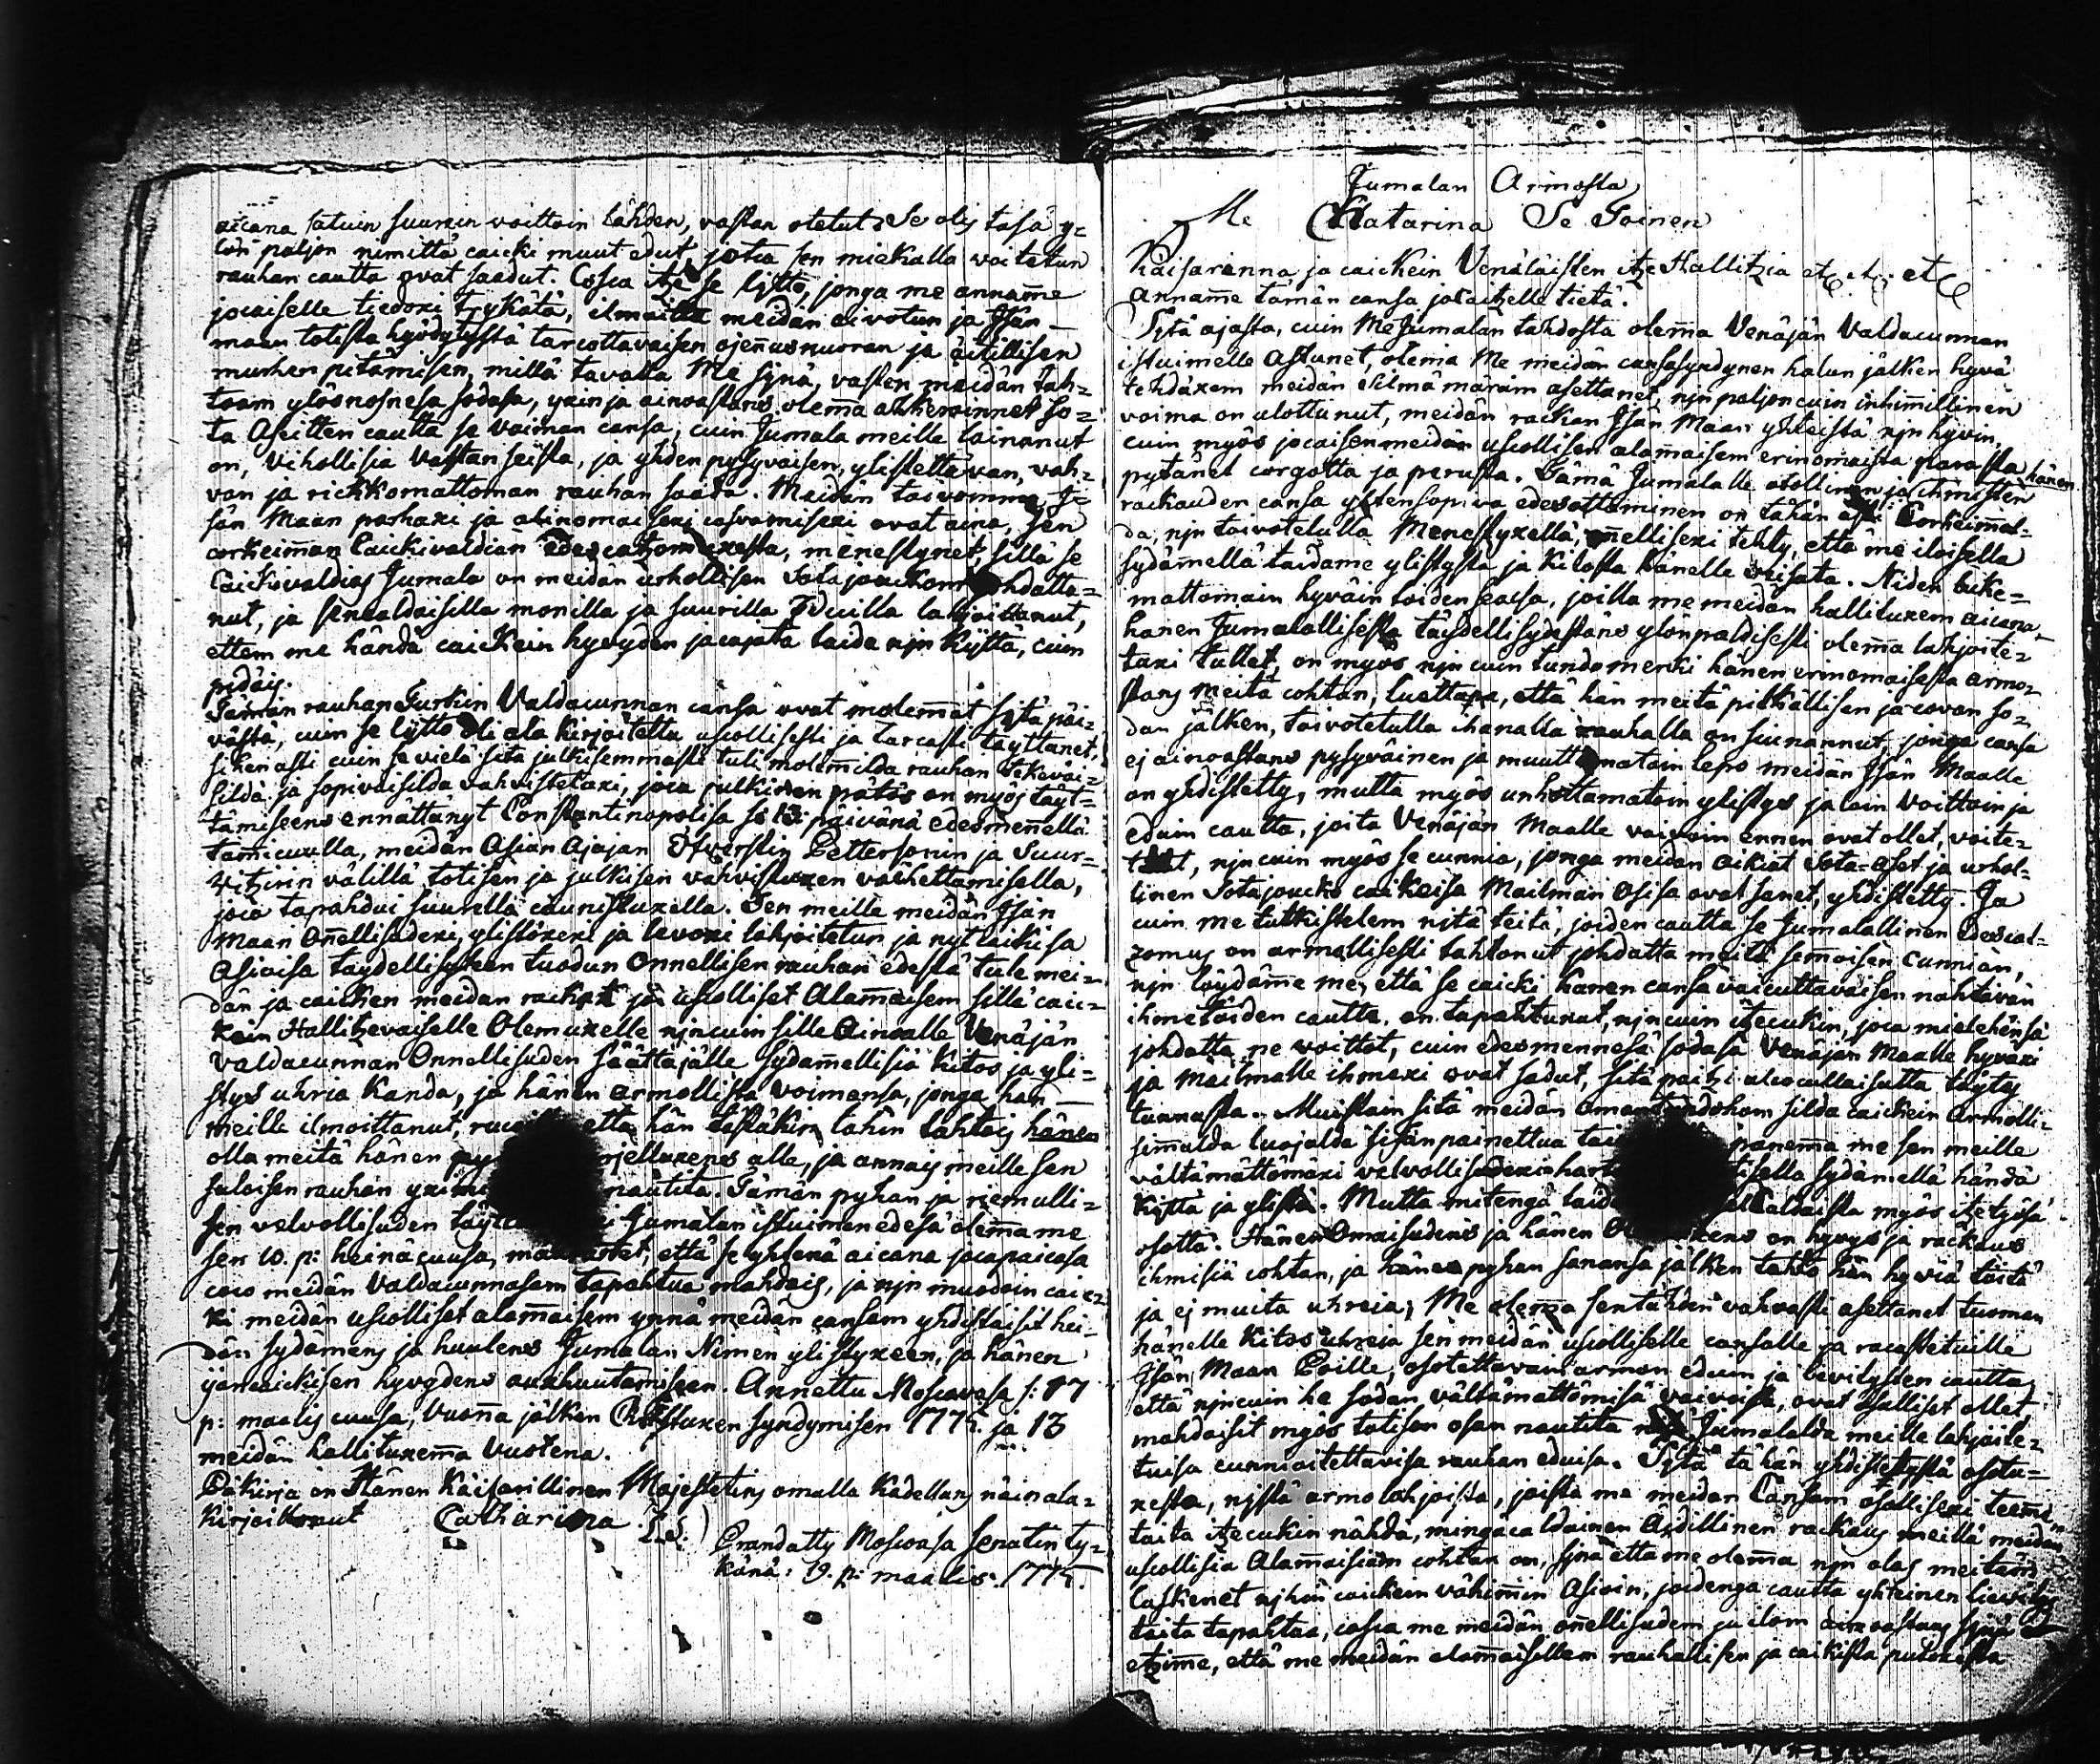 aicana satuin suurein voittoin tähden, vastan otetut. Se olis tasä y=
lön paljon nimittä caicki muut edut, joita sen miekalla voitetun
rauhan cautta ovat saadut. Cosca itze se lijtto, jonga me annam̄e
jocaiselle tiedoxi trykätä, ilmoitta meidän aivotun ja Isän
maan totista hyödytystä tarcottavaisen ojen̄usnuoran ja äitillisen
murhen pitämisen, millä tavalla Me sijnä, vasten meidän tah=
toam ylösnosnesa sodasa, yxin ja ainoastans olem̄a ahkeroinnet so=
ta Aseitten cautta ja voiman cansa, cuin Jumala meille lainanut
on, vihollisia vastan seista, ja yhden pysyväisen, ylistettävän, vah=
van ja rickkomattoman rauhan saada. Meidän toivomme I=
sän Maan parhaxi ja alinomaisexi casvamisexi ovat aina, sen
corkeim̄an Caickivaldian edescatzomuxesta, menestynet, sillä se
Caickivaldias Jumala on meidän urhollisen Sotajouckom johdatta=
nut, ja sencaldaisilla monilla ja suurilla Eduilla lahjoittanut,
ettem me händä caickein hyvyden jacajata taida nijn kijttä, cuin
pidäis.
Tämän rauhan Turkin Valdacunnan cansa ovat molem̄at sijtä päi=
västä, cuin se lijtto oli ala kirjoitettu uscollisesti ja tarcasti täyttänet,
sihen asti cuin se vielä sitä julkisemmasti tuli molem̄ilda rauhan tekeväi=
sildä ja sopivaisilda vahvistetaxi, joca julkinen päätös on myös täyt=
tämisens ennättänyt Constantinopolisa s: 13: päivänä edesmen̄ellä
tam̄icuulla, meidän Asian Ajajan Öfverstin Pettersonin ja Suur=
Vizirin välillä, totisen ja julkisen vahvistuxen vaihettamisella,
joca tapahdui suurella caunistuxella. Sen meille meidän Isän
Maan On̄ellisudexi, ylistöxexi ja levoxi lahjoitetun ja nyt caikisa
Asioisa täydellisyteen tuodun Onnellisen rauhan edestä tule mei=
dän ja caicken meidän rackat ja uscolliset Alam̄aisem sillä caic=
kein Hallitzevaiselle Olemuxelle nijncuin sille Ainoalle Venäjän
Valdacunnan Onnellisuden Säättäjälle sydämellisiä kitos ja yli=
stys uhria kanda, ja hänen armollista voimansa, jonga hän
meille ilmoittanut, että hän tästäkin tähin tahtois hänen
olla meitä hänen alle, ja annais meille sen
suloisen rauhan nautita. Tämän pyhän ja riemulli=
sen velvollisuden Jumalan istuimen edesä olem̄a me
sen 10. p: heinäcuusa, että se yhtenä aicana jocapaicasa
coco meidän Valdacunnasam tapahtua mahdais, ja nijn muodoin caic=
ki meidän uscolliset alam̄aisem ynnä meidän cansam yhdistäisit hei=
dän sydämens ja huulens Jumalan Nimen ylistyxeen, ja hänen
ijancaickisen hyvydens auxhuutamiseen. Annettu Moscovasa s: 17
p: maalis cuusa, vuon̄a jälken Christuxen syndymisen 1775. ja 13
meidän hallituxem̄a Vuotena.
Pääkirja on Hänen Käisarillinen Majestetins omalla kädellans näin ala=
kirjoittanut Catharina. L.S.)
Prändätty Moscoasa Senatin ty=
könä: 19. p: maalis. 1775.
Jumalan Armosta
Me Chatarina Se Toinen
Käisarinna ja caickein Venäläisten itze Hallitzia etc. etc. etc
Annam̄e tämän cansa jocaitzelle tietä.
Sijtä ajasta, cuin Me Jumalan tahdosta olem̄a Venäjän Valdacunnan
istuimelle Astunet, olem̄a Me meidän cansasyndynen halun jälken hyvä
tehdäxem meidän Silmämäräm asettanet, nijn paljon cuin inhimillinen
voima on ulottunut, meidän rackan Isän Maan yhteistä nijn hyvin,
cuin myös jocaisen meidän uscollisen alam̄aisem erinomaista parasta
pytänet corgotta ja perusta. Tämä Jumalalle otollinen ja ihmisten hänen
rackauden cansa yhten sopiva edesottaminen on tähän asti Corkeim̄al=
da, nijn toivotetulla Menestyxellä, on̄ellisexi tehty, että me iloisella
sydämellä taidame ylistystä ja kitosta hänelle veisata. Niden luke=
mattomain hyväin töiden seasa, joilla me meidän hallituxem aicana,
hänen Jumalallisesta täydellisydestäns ylönpaldisesti olem̄a lahjoite=
taxi tullet, on myös nijn cuin tundomerki hänen erinomaisesta armo=
stans meitä cohtan, luettapa, että hän meitä pitkällisen ja covan so=
dan jälken, toivotetulla ihanalla rauhalla on siunannut, jonga cansa
ej ainoastans pysyväinen ja muuttumatoin lepo meidän Isän Maalle
on yhdistetty, mutta myös unhottamatoin ylistys ja loin voittoin ja
eduin cautta, joita Venäjän Maalle vaivoin ennen ovat ollet, voite=
tut, nijncuin myös se cunnia, jonga meidän oikiat Sota=aset ja urhol=
linen Sotajoucko caikeisa Mailman Osisa ovat sanet, yhdistetty. Ja
cuin me tutkistelem nijtä teitä, joiden cautta se Jumalallinen Edescat=
zomus on armollisesti tahtonut johdatta meitä sem̄oisen Cunnian,
nijn löydäm̄e me, että se caicki hänen cansa vaicuttavaisen nähtävän
ihmetöiden cautta, on tapahtunut, nijncuin itzecukin, joca mielehensä
johdatta ne voittot, cuin edesmennesä sodasa Venäjän Maalle hyväxi
ja Mailmalle ihmexi ovat sadut, sitä paitzi ulcocullaisutta täyty
tunnusta. Muistain sitä meidän oman tundoham silda caickein Armolli=
sim̄alda luojalda sisänpainettua panem̄a me sen meille
vältämättömäxi velvollisudexi sydämellä händä
kijttä ja ylistä. Mutta mitengä myös itze työsä
osotta. Hänen Omaisudens ja hänen on hyvys ja rackaus
ihmisiä cohtan, ja hänen pyhän sanansa jälken tahto hän hyviä töitä
ja ej muita uhreia; Me olem̄a sentähden vahvasti asettanet tuoman
hänelle kitos uhreia sen meidän uscolliselle cansalle ja racastetuille
Isän Maan Poille, osotettavan armon eduin ja levitysten cautta,
että nijncuin he sodan vältämättömisä vaivoisa, ovat osalliset ollet
mahdaisit myös totisen osan nautita Jumalalda meille lahjoite=
tuisa cunnioitettavisa rauhan eduisa. Sijtä tähän yhdistetystä osotu=
xesta, nijstä armolahjoista, joista me meidän Cansam osallisexi teem̄e
taita itzecukin nähdä, mingäcaldainen Äidillinen rackaus meillä meidän
uscollisia Alam̄aisiam cohtan on, sijnä että me olem̄a nijn alas meitäm
laskenet nijhin caickein vähim̄in Asioin, joidenga cautta yhteinen liewitys
taita tapahtua, cosca me meidän on̄ellisudem ja ilom ainoastans sijnä
etzim̄e, että me meidän alam̄aisillem rauhallisen ja caikista puutoxesta